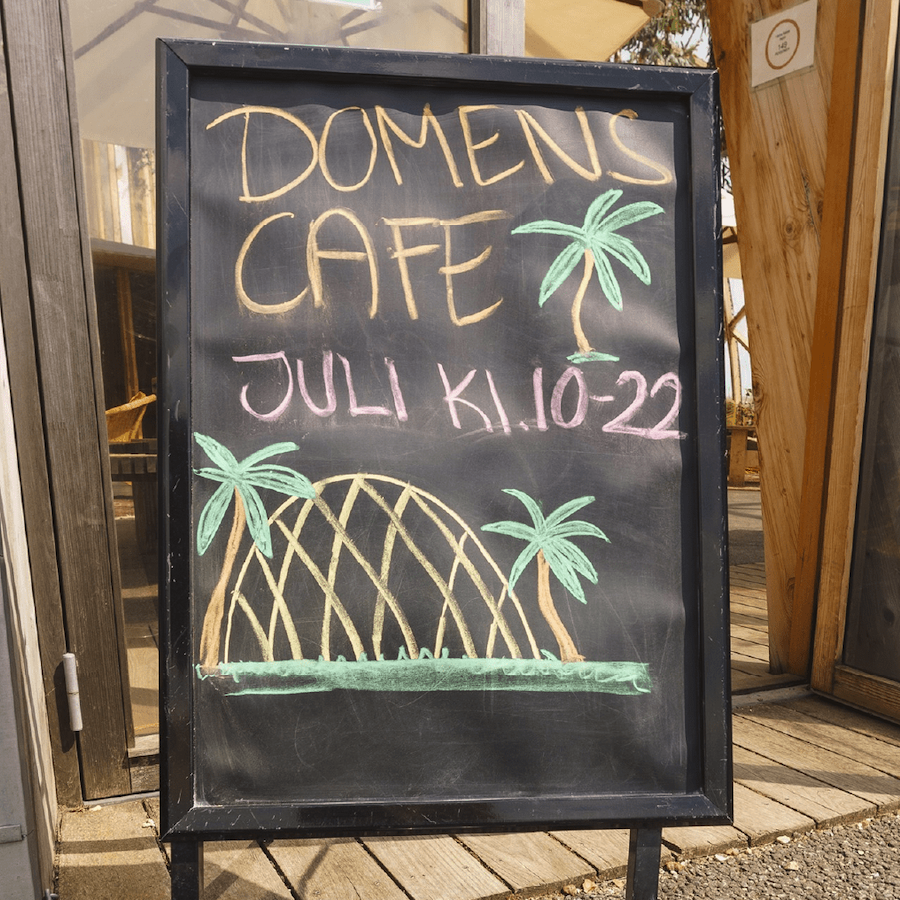 DOMENS
CAFE
JULI Kl.10-22